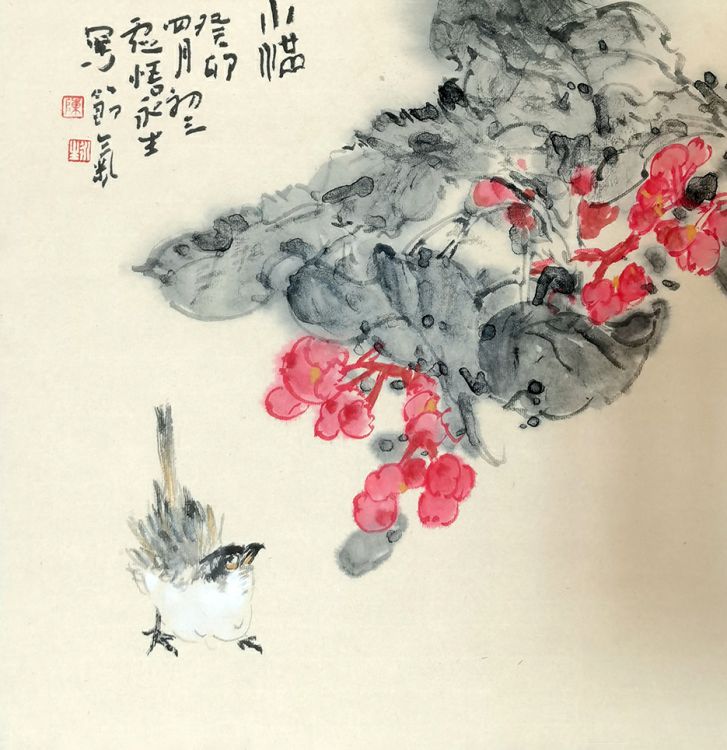 小滿
癸卯
四月初三
永生
寫節氣
陳